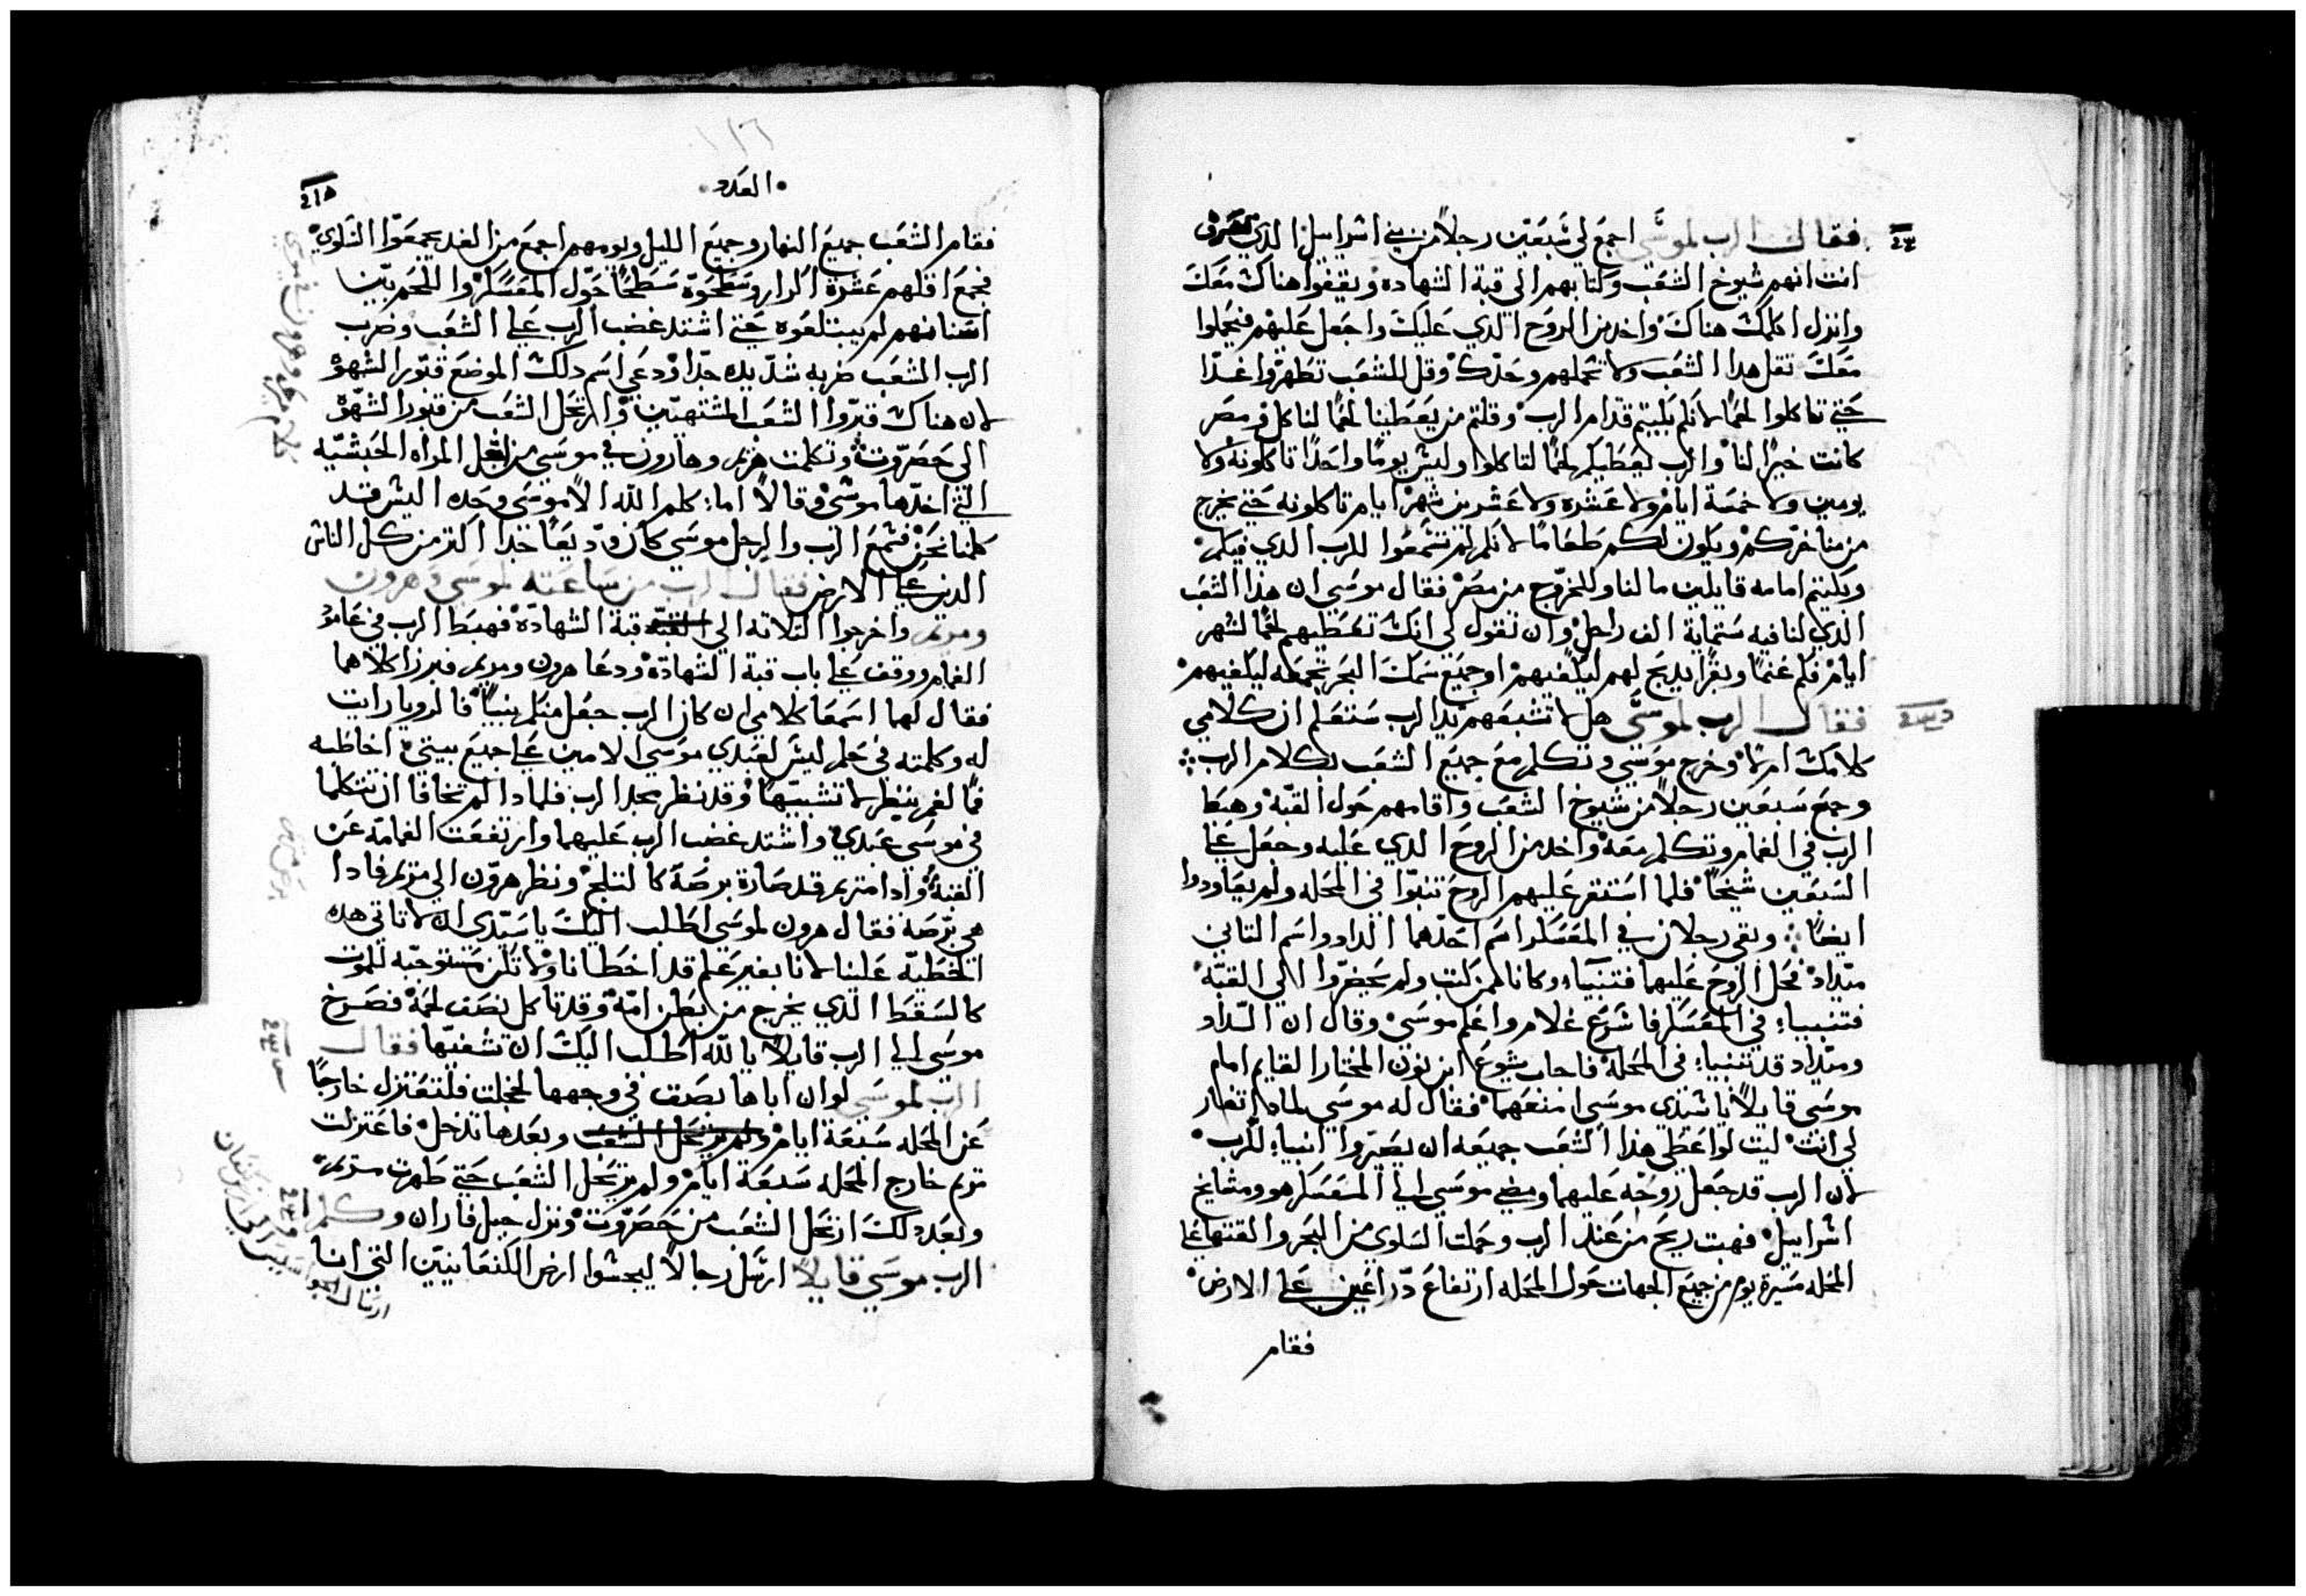 فقال الرب لموسى اجمع لي سبعين رجلاً من بني اسراييل الذي تعرف
انت انهم شيوخ الشعب وكتابهم الى قبة الشهاده ويقفوا هناك معك
وانزل اكلمك هناك واخد من الروح الذي عليك واجعل عليهم فيحملوا
معك تقل هدا الشعب ولا تحملهم وحدك وقل للشعب تطهروا غداً
حتي تاكلوا لحماً لانكم بكيتم قدام الرب وقلتم من يعطينا لحماً لناكل في مصر
كانت خيراً لنا والرب يعطيكم لحماً لتاكلوا وليس يوماً واحداً تاكلونه ولا
يومين ولا خمسة ايام ولا عشره ولا عشرين شهر ايام تاكلونه حتي يخرج
من مناخركم ويكون لكم طعاماً لانكم لم تسمعوا للرب الدي فيكم
وبكيتم امامه قايلين ما لنا وللخروج من مصر فقال موسى ان هذا الشعب
الدي انا فيه ستماية الف راجل وان تقول لي انك تعطيهم لحماً لشهر
ايام فكم غنماً وبقراً يدبح لهم ليكفيهم او جميع سمك البحر تجمعه ليكفيهم
فقال الرب لموسى هل لا تشبعهم يد الرب ستعلم ان كلامي
كلامك ام لا وخرج موسي وتكلم مع جميع الشعب بكلام الرب
وجمع سبعين رجلاً من شيوخ الشعب واقامهم حول القبه وهبط
الرب في الغمام وتكلم معه واخد من الروح الدي عليه وجعل علي
السبعين شيخاً فلما استقر عليهم الروح تنبوا في المحله ولم يعاودوا
ايضاً وبقي رجلان في المعسكر اسم احدهما الداد واسم التاني
ميداد فحل الروح عليهما فتنبياء وكانا ممن كتب ولم يحضروا الي القبه
فتنبيا في المعسكر فاسرع غلام واعلم موسى وقال ان الداد
وميداد قد تنبيا في المحله فاجاب يشوع ابن نون المختار القايم امام
موسى قايلاً يا سيدي موسى امنعهما فقال له موسى لمادا تغار
لي انت ليت لو اعطى هذا الشعب جميعه ان يصيروا انبيا للرب
لان الرب قد جعل روحه عليهما ومضى موسى الى المعسكر هو ومشايخ
اسراييل فهبت ريح من عند الرب وحملت السلوى من البحر والقتها علي
المحله مسيرة يوم من جميع الجهات حول المحله ارتفاع دراعين على الارض
فقام
العدد
فقام الشعب جميع النهار وجميع الليل ويومهم اجمع من الغد يجمعوا السلوي
فجمع اقلهم عشرة اكرار وسطحوه سطحاً حول المعسكر واللحم بين
اسنانهم لم يبتلعوه حتي اشتد غضب الرب على الشعب وضرب
الرب الشعب ضربه شديده جداً ودعي اسم دلك الموضع قبور الشهوة
لان هناك قبروا الشعب المشتهين وارتحل الشعب من قبور الشهوة
الى حضروت وتكلمت مريم وهارون في موسى من اجل المراه الحبشيه
التي اخدها موسى وقالا اما كلم الله الا موسى وحده اليس قد
كلمنا نحن فسمع الرب والرجل موسى كان وديعاً جدا اكتر من كل الناس
الذين على الارض فقال الرب من ساعته لموسى وهرون
ومريم واخرجوا التلاته الي القبه قبة الشهادة فهبط الرب في عامود
الغمام ووقف على باب قبة الشهادة ودعا هرون ومريم فبرزا كلاهما
فقال لهما اسمعا كلامي ان كان الرب جعل منكم نبياً فالرويا رايت
له وكلمته في حلم ليس لعبدي موسى الامين على جميع بيتي اخاطبه
فماً لفم ينظر لا تشبيهاً وقد نظر مجد الرب فلمادا لم تخافا ان تتكلما
في موسى عبدي واشتد غضب الرب عليهما وارتفعت الغمامه عن
القبة وادا مريم قد صارة برصة كالتلج ونظر هرون الي مريم فادا
هي برصه فقال هرون لموسى اطلب اليك يا سيدي ان لا تاتي هده
الخطيه علينا لانا بغير علم قد اخطانا ولا تكن مستوجبه للموت
كالسقط الذي يخرج من بطن امه وقد تاكل نصف لحمه فصرخ
موسى الي الرب قايلاً يا لله اطلب اليك ان تشفيها فقال
الرب لموسى لو ان اباها بصق في وجهها لخجلت فلتعتزل خارجاً
عن المحله سبعة ايام ولم يرتحل الشعب وبعدها تدخل فاعتزلت
مريم خارج المحله سبعة ايام ولم يرتحل الشعب حتي طهرت مريم
وبعد دلك ارتحل الشعب من حضروت ونزل جبل فاران وكلم
الرب موسى قايلاً ارسل رجالاً ليجسوا ارض الكنعانيين التي انا
كلام مريم وهرون في موسى
برص مريم
ارسال الجواسيس الي ارض كنعان